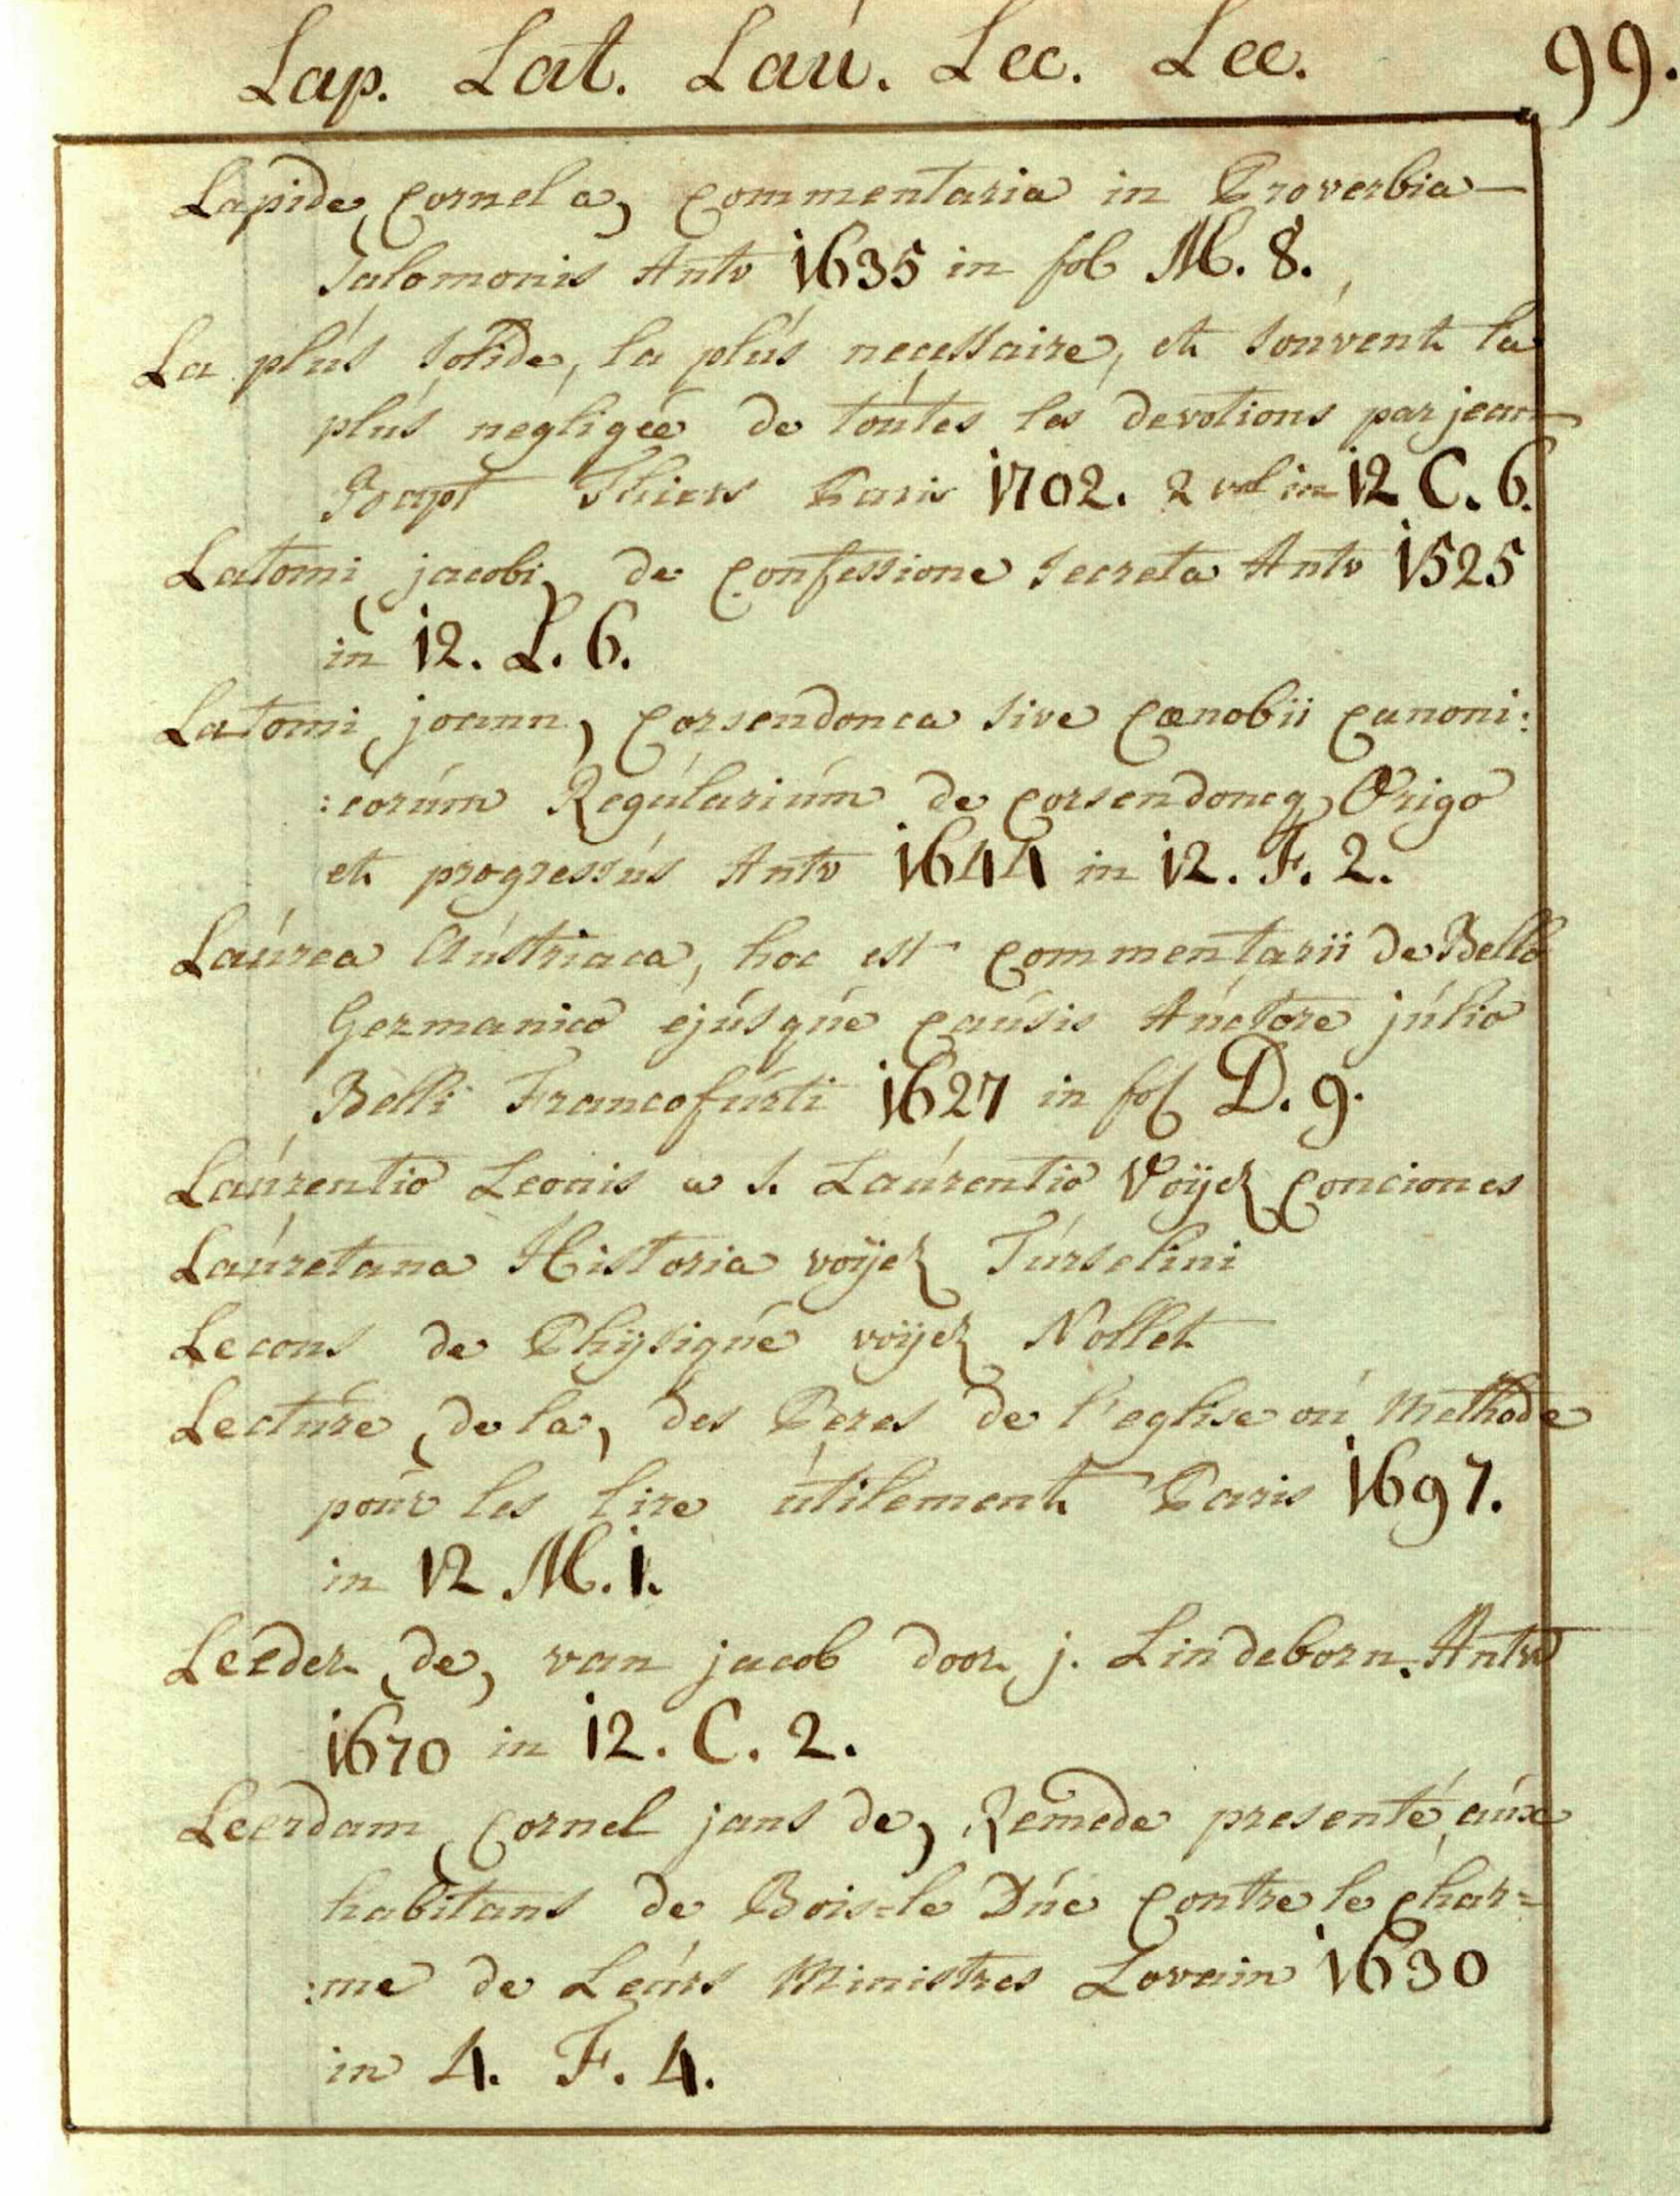 Lap. Lat. Laú. Lec. Lee. 99.
Lapide (Cornel a) Commentaria in Proverbia
Salomonis Antv 1635 in fol M. 8.
La plús solide, la plús necessaire, et soúvent la
plús négligée de toútes les devotions par jean
Bapt Thiers Paris 1702. 2 vol in 12 C. 6.
Latomi (jacobi) de Confessione secreta Antv 1525
in 12. L. 6.
Latomi (joann) Corsendonca sive Cœnobii Canoni:
:corúm Regúlariúm de Corsendoncq Origo
et progressús Antv 1644 in 12. F. 2.
Laúrea Aústriaca, hoc est Commentarii de Bello
Germanico ejúsqúe Caúsis Aúctore júlio
Belli Francofúrti 1627 in fol D. 9.
Laúrentio Leonis a S. Laúrentio Voÿez Conciones
Laúretana Historia voÿez Túrselini
Lecons de Phÿsiqúe voÿez Nollet
Lectúre (de la) des Peres de l'eglise oú Methode
poúr les lire útilement Paris 1697.
in 12 M. 1.
Leeder (de) van jacob door j. Lindeborn. Antv
1670 in 12. C. 2.
Leerdam (Cornel jans de) Remede presenté aúx
habitans de Bois=le Dúc Contre le Char=
:me de Leúrs Ministres Lovain 1630
in 4. F. 4.